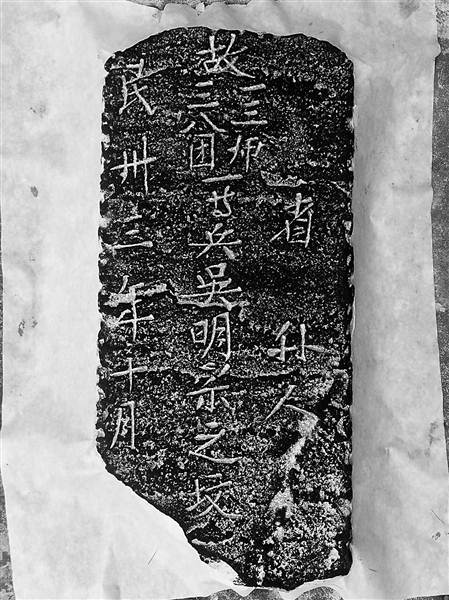 省 人
故一三师三八团一等兵吳明宗之坟
民卅三年十月